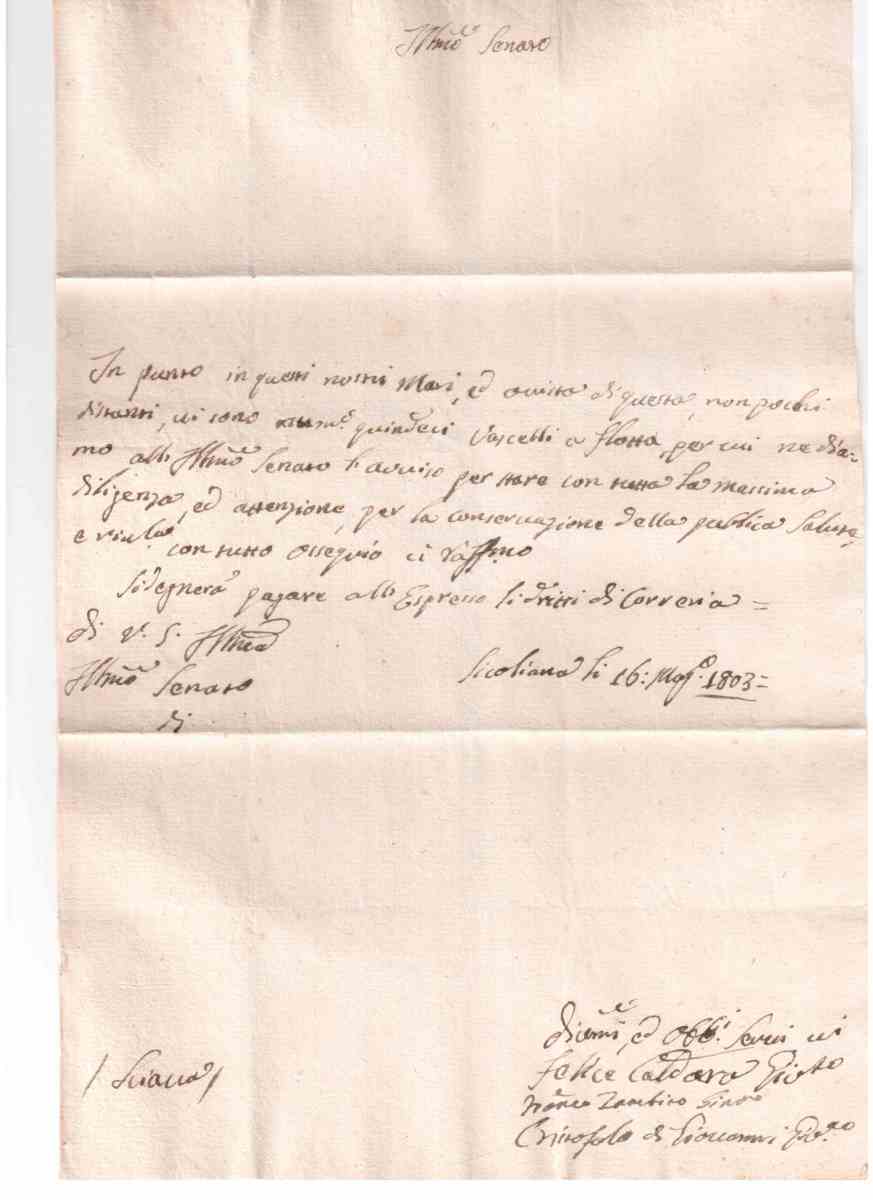 Illmõ Senato
In punto in questi nostri Mari, ed a vista di questa, non pochi
distanti, vi sono num.º quindeci Vascelli a flotta, per cui ne dia=
mo all' Illmõ Senato l'avviso per stare con tutta la massima
diligenza, ed attenzione, per la conservazione della publica Salute,
e con tutto ossequio ci raffmo
Si degnerà pagare all' Espresso li dritti di Correria =
di V. S. Illma
Illmõ Senato
di
Sicoliana li 16: Magº. 1803 =
/ Sciacca /
ed obbi. Servi
Felice Caldara Giuto
Franco Zambito Giuto
Cristofalo di Giovanni Giuto